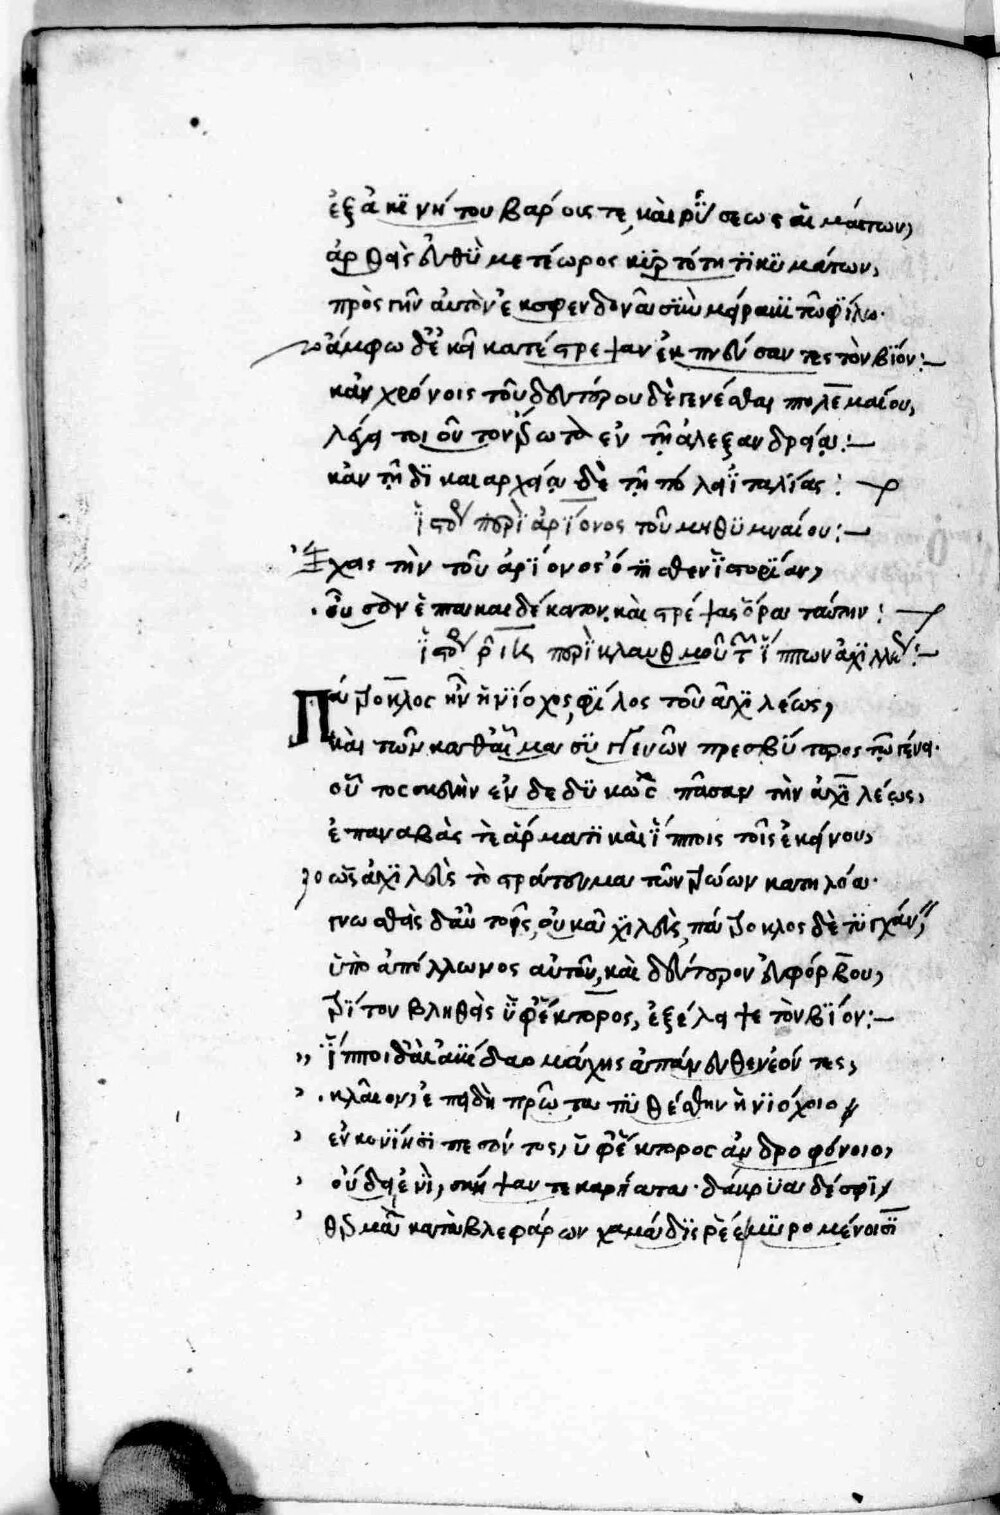 ἐξ ἀκινήτου βάρους τε, καὶ ῥύσεως αἱμάτων,
ἀρθεὶς εὐθὺ μετέωρος κυρτότητι κυμάτων,
πρὸς γῆν αὐτὸν ἐκσφενδονᾶ σὺν μείρακι τῷ φίλῳ.
ἄμφω δ' ἐκεῖ κατέστρεψαν ἐκπνεύσαντες τὸν βίον:
κἂν χρόνοις τοῦ δευτέρου δὲ γενέσθαι πτολεμαίου,
λέγεταί τοι οὖν τουτὸ ἐν τῇ ἀλεξανδρείᾳ:
κἂν τῇ δικαιαρχείᾳ δὲ τῇ πόλει ἰταλίας:
ἱστορ περὶ ἀρίονος τοῦ μηθυμναίου:
Ἔχεις τὴν τοῦ ἀρίονος ὄπισθεν ἱστορίαν,
οὖσαν ἑπτακαιδεκάτην. καὶ στρέψας ὅρα ταύτην:
ἱστορ ριης περὶ κλαυθμοῦ τῶν ἵππων ἀχιλλέως:
Πάτροκλος ἦν ἡνίοχος, φίλος τοῦ ἀχιλέως,
καὶ τῶν καθ' αἷμα συγγενῶν πρεσβύτερος τῷ γένει.
οὗτος σκευὴν ἐνδεδυκὼς πᾶσαν τὴν ἀχιλέως,
ἐπαναβὰς τε ἅρματι καὶ ἵπποις τοῖς ἐκείνου,
ὡς ἀχιλεὺς τὸ στράτευμα τῶν τρώων κατηλόα.
γνωσθεὶς δ' αὐτοῖς, οὐκ ἀχιλεὺς, πάτροκλος δὲ τυγχάνειν,
ὑπὸ ἀπόλλωνος αὐτοῦ, καὶ δεύτερον εὐφόρβου,
τρίτον βληθεὶς ὑφ' ἕκτορος, ἐξέλειψε τὸν βίον:
ἵπποι δ' αἰακίδαο μάχης ἀπάνευθεν ἐόντες,
κλαῖον, ἐπειδὴ πρῶτα πυθέσθην ἡνιόχοιο
ἐν κονίῃσι πεσόντος, ὑφ' ἕκτορος ἀνδροφόνοιο,
οὔδει ἐνὶ, σκήψαντε καρήατα. δάκρυα δέ σφι
θερμὰ κατὰ βλεφάρων χαμάδις ῥέε μυρομένοισι